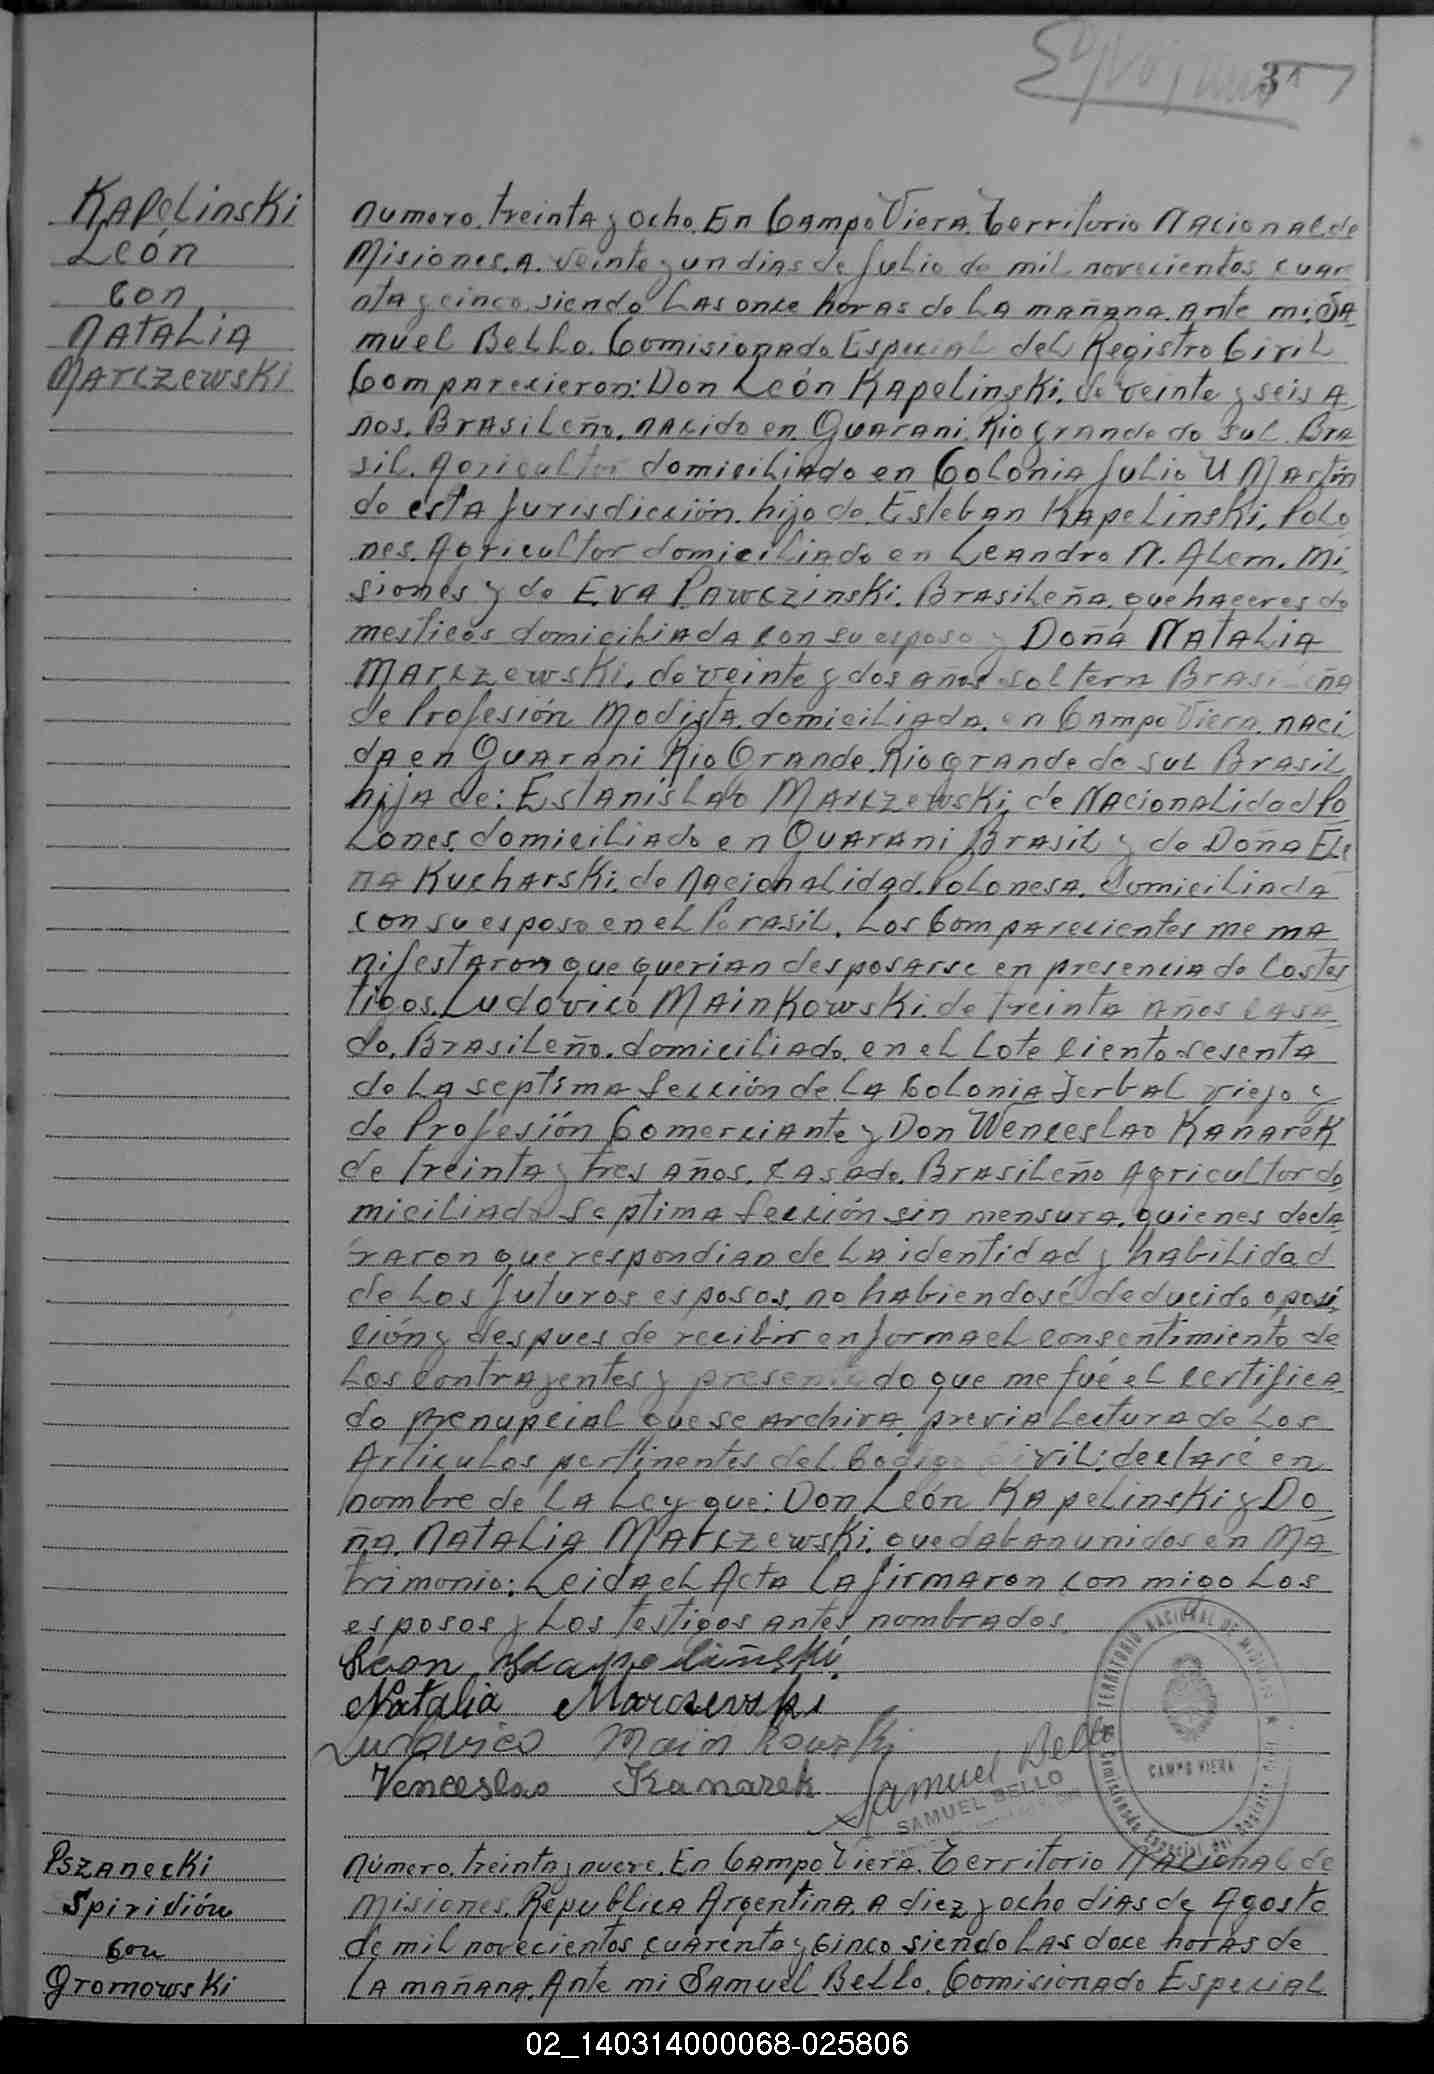 31
Kapelinski
León
con
Natalia
Marczewski
Numero. treinta y ocho. En Campo Viera. Territorio Nacional de
Misiones. A. veinte y un dias de Julio de mil novecientos cuare
nta y cinco. siendo las once horas de la mañana. Ante mi. Sa
muel Bello. Comisionado Especial del Registro Civil
Comparecieron: Don León Kapelinski. de veinte y seis a
ños. Brasileño. nacido en Guarani. Rio grande do sul. Bra
sil. Agricultor domiciliado en Colonia Julio U Martin
de esta Jurisdicción. hijo de Esteban Kapelinski. Polo
nes. Agricultor domiciliado en Leandro N. Alem. Mi
siones y de Eva Pawczinski. Brasileña. quehaceres do
mesticos domiciliada con su esposo y Doña Natalia
Marczewski. de veinte y dos años soltera Brasileña
de Profesión Modista. domiciliada. en Campo Viera. naci
da en Guarani Rio Grande. Rio grande do sul Brasil
hija de: Estanislao Marczewski, de Nacionalidad Po
lones. domiciliado en Guarani Brasil y de Doña Ele
na Kucharski. de Nacionalidad. Polonesa. domiciliada
con su esposo en el Brasil. Los Comparecientes me ma
nifestaron que querian desposarse en presencia de los tes
tigos. Ludovico Mainkowski. de treinta años casa
do. Brasileño. domiciliado. en el lote ciento sesenta
de la septima sección de la Colonia Yerbal viejo y
de Profesión Comerciante y Don Wenceslao Kanarek
de treinta y tres años. casado. Brasileño Agricultor do
miciliado septima sección sin mensura. quienes decla
raron que respondian de la identidad y habilidad
de los futuros esposos. no habiendosé deducido oposi
ción y despues de recibir en forma el consentimiento de
los contrayentes y presentado que me fué el certifica
do prenupcial que se archiva. previa lectura de los
Articulos pertinentes del Codigo Civil: declaré en
nombre de la Ley que: Don León Kapelinski y Do
ña. Natalia Marczewski. quedaban unidos en Ma
trimonio: Leida el Acta la firmaron con migo los
esposos y los testigos antes nombrados.
Leon Kapeliñski
Natalia Marczewski
Ludovico Mainkowski
Venceslao Kanarek
Samuel Bello
SAMUEL BELLO
TERRITORIO NACIONAL DE MISIONES
CAMPO VIERA
Comisionado Especial del Registro Civil
Pszanecki
Spiridión
Con
Gromowski
Número. treinta y nueve. En Campo Viera. Territorio Nacional de
Misiones. Republica Argentina. A diez y ocho dias de Agosto
de mil novecientos cuarenta y cinco siendo las doce horas de
la mañana. Ante mi Samuel Bello. Comisionado Especial
02_140314000068-025806